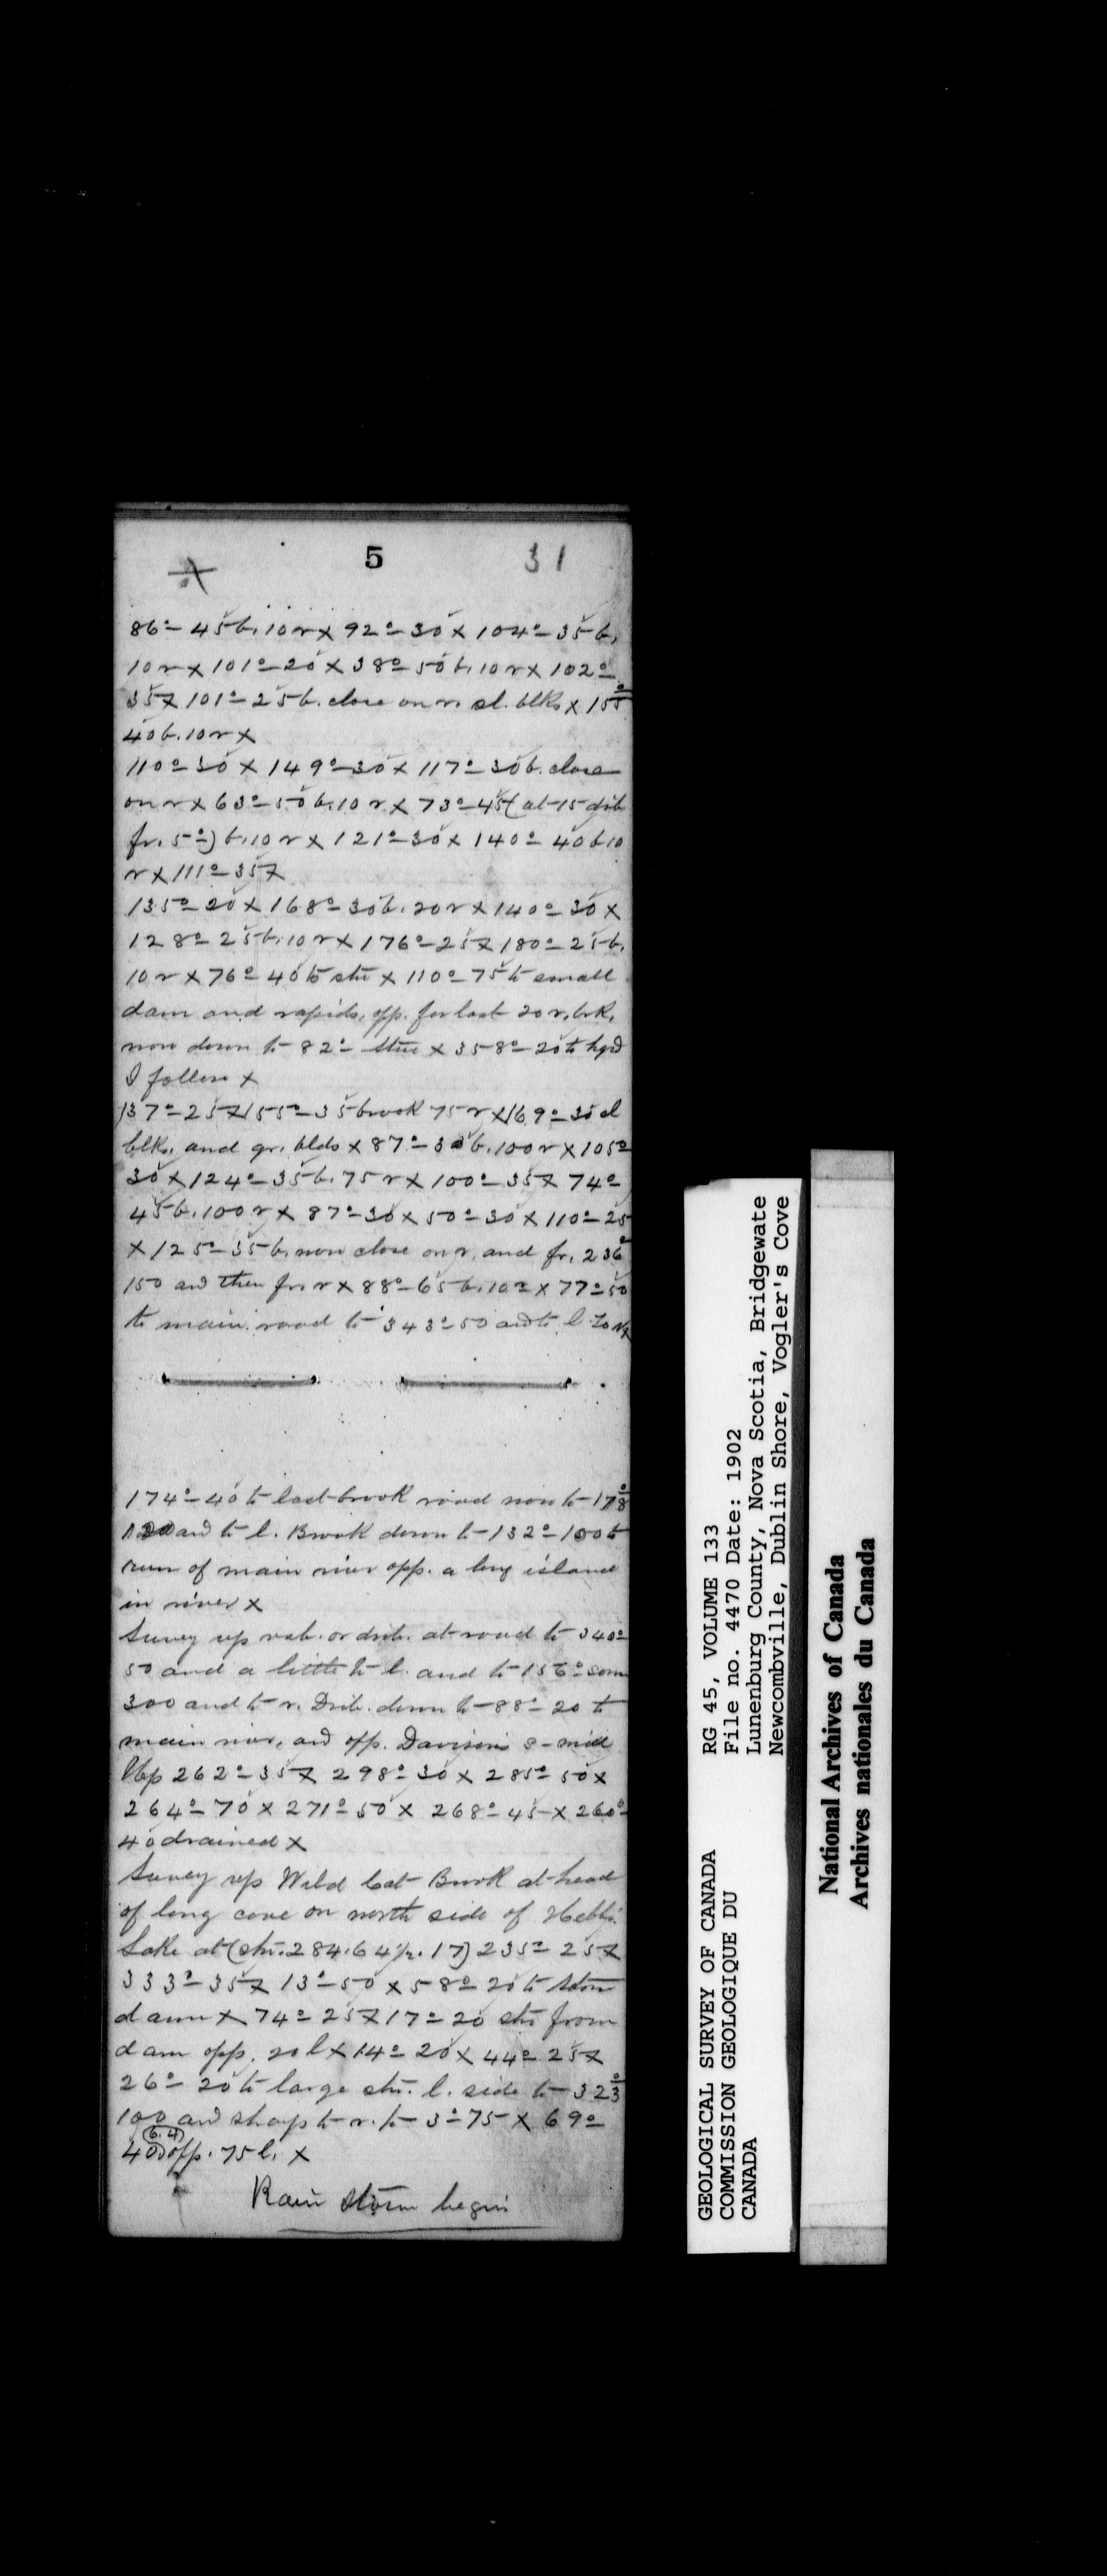 5 31
x
86°- 45 b. 10 r x 92°- 30 x 104°- 35 b.
10 r x 101°- 20 x 38°- 50 b. 10 r x 102°-
35 x 101°- 25 b. close on r. sl. blks x 155°
40 b. 10 r x
110°- 30 x 149°- 30 x 117°- 30 b. close
on r x 63°- 50 b. 10 r x 73°- 45 (at 15 drib
fr. 5°-) b. 10 r x 121°- 30 x 140°- 40 b 10
r x 111°- 35 x
135°- 20 x 168°- 30 b. 20 r x 140°- 30 x
128°- 25 b. 10 r x 176°- 25 x 180°- 25 b.
10 r x 76°- 40 to str x 110°- 75 to small
dam and rapids, opp. for last 20 r. brk.
now down to 82°- x 358°- 20 to hyd
I follow x
137°- 25 x 155°- 35 brook 75 r x 169°- 30 sl
blks. and gr. blds x 87°- 30 b. 100 r x 105°-
30 x 124°- 35 b. 75 r x 100°- 35 x 74°-
45 b. 100 r x 87°- 30 x 50°- 30 x 110°- 25
x 125°- 35 b. now close on r. and fr. 236°
150 and then fr. r x 88°- 65 b. 10 r x 77°- 50
to main road to 343°- 50 and to l
174°- 40 to last brook road now to 178°
120 and to l. Brook down to 132°- 100 to
run of main river opp. a long island
in river x
Survey up drib. at road to 340°-
50 and a little to l. and to 156°- some
300 and to r. Drib. down to 88°- 20 to
main river, and opp. Davison's s-mill
Up 262°- 35 x 298°- 30 x 285°- 50 x
264°- 70 x 271°- 50 x 268°- 45 x 260°-
40 drained x
Survey up Wild Cat Brook at head
of long cove on north side of Hebb's
Lake at (str. 284.64 p. 17) 235°- 25 x
333°- 35 x 13°- 50 x 58°- 20 to stone
dam x 74°- 25 x 17°- 20 str from
dam opp. 20 l x 14°- 20 x 44°- 25 x
26°- 20 to large str. l. side to 323°
100 and sharp to r. to 3°- 75 x 69°-
(6.4)
40 opp. 75 l. x
Rain storm begin
GEOLOGICAL SURVEY OF CANADA
COMMISSION GEOLOGIQUE DU
CANADA
RG 45, VOLUME 133
File no. 4470 Date: 1902
Lunenburg County, Nova Scotia, Bridgewate
Newcombville, Dublin Shore, Vogler's Cove
National Archives of Canada
Archives nationales du Canada